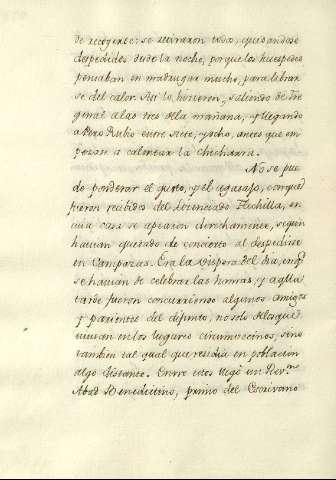 de recogerse: se retiraron todos, quedandose
despedidos desde la noche, porque los huespedes
pensaban en madrugar mucho, para librar
se del calor. Asi lo hicieron, saliendo de Fre
genal a las tres de la mañana, y llegando
a Pero Rubio entre siete, y ocho, antes que em
pezara a calentar la chicharra.
No se pue
de ponderar el gusto, y el agasajo, con que
fueron recibidos del Licenciado Flechilla, en
cuia casa se apearon derechamente, segun
havian quedado de concierto al despedirse
en Campazas. Era la vispera del dia, en q.e
se havian de celebrar las honras, y aq.lla
tarde fueron concurriendo algunos amigos
y parientes del defunto, no solo de los que
vivian en los lugares circumvecinos, sino
tambien tal qual que residia en poblacion
algo distante. Entre estos llegò un Rev.mo
Abad Benedictino, primo del Escrivano